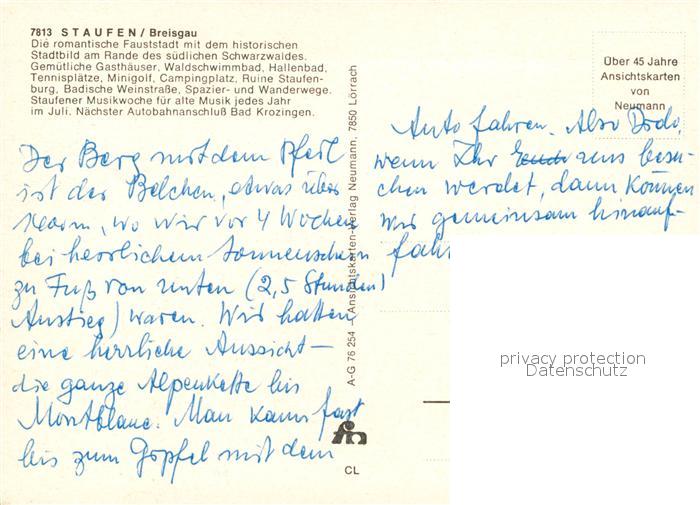 7813 STAUFEN/Breisgau
Die romantische Fauststadt mit dem historischen
Stadtbild am Rande des südlichen Schwarzwaldes.
Gemütliche Gasthäuser, Waldschwimmbad, Hallenbad,
Tennisplätze, Minigolf, Campingplatz, Ruine Staufen-
burg, Badische Weinstraße, Spazier- und Wanderwege.
Staufener Musikwoche für alte Musik jedes Jahr
im Juli. Nächster Autobahnanschluß Bad Krozingen.
Der Berg mit dem Pfeil
ist der Belchen, etwas über
1400m, wo wir vor 4 Wochen
bei herrlichem Sonnenschein
zu Fuß von unten (2,5 Stunden
Anstieg) waren. Wir hatten
eine herrliche Aussicht –
die ganze Alpenkette bis
Montblanc. Man kann fast
bis zum Gipfel mit dem
A-G 76 254 – (Ansichtskarten-Verlag Neumann, 7850 Lörrach
fn
CL
Über 45 Jahre
Ansichtskarten
von
Neumann
Auto fahren. Also Dodo,
wenn Ihr uns besu-
chen werdet, dann können
wir gemeinsam hinauf-
fahr
privacy protection
Datenschutz